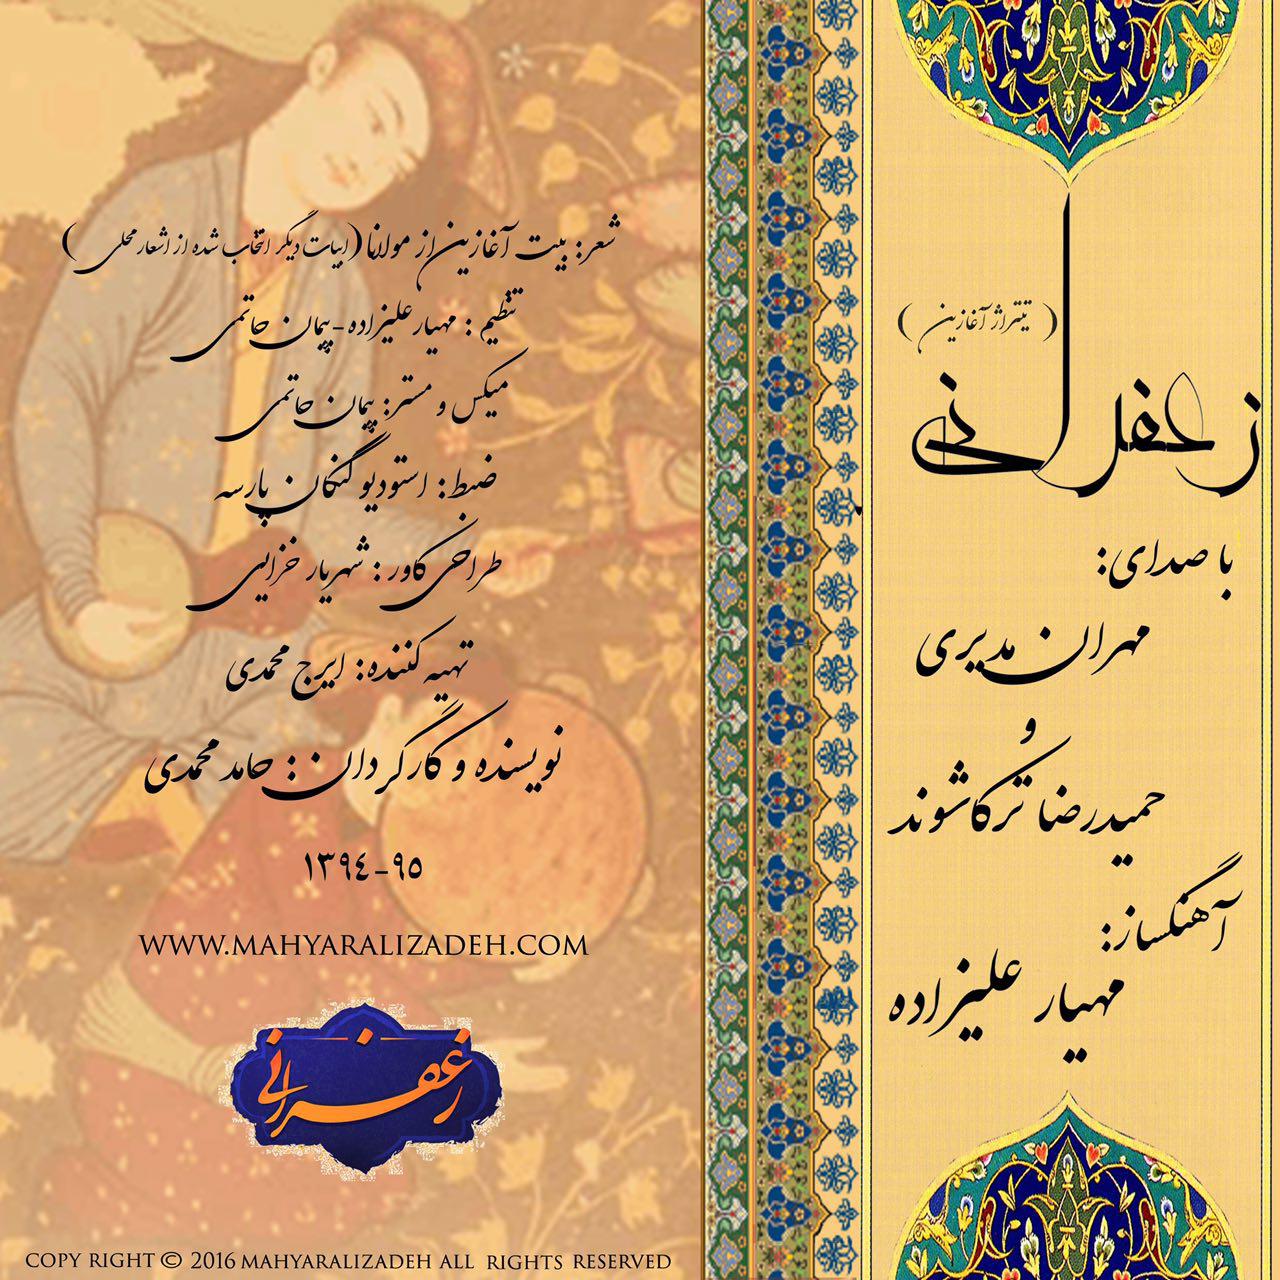 ( تیتراژ آغازین )
زعفرانی
با صدای:
مهران مدیری
و
حمیدرضا ترکاشوند
آهنگساز:
مهیار علیزاده
شعر: بیت آغازین از مولانا (ابیات دیگر انتخاب شده از اشعار محلی)
تنظیم : مهیار علیزاده - پیمان حاتمی
میکس و مستر: پیمان حاتمی
ضبط: استودیو گنگان پارسه
طراحی کاور : شهریار خزایی
تهیه کننده: ایرج محمدی
نویسنده و کارگردان : حامد محمدی
۱۳۹٤-۹۵
WWW.MAHYARALIZADEH.COM
زعفرانی
COPY RIGHT © 2016 MAHYARALIZADEH ALL RIGHTS RESERVED